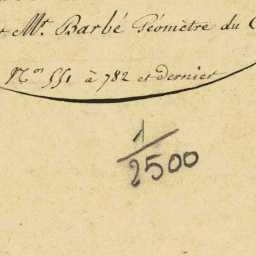 Mr. Barbé Géomètre du C
Nos 551 à 782 et dernier
1/2500